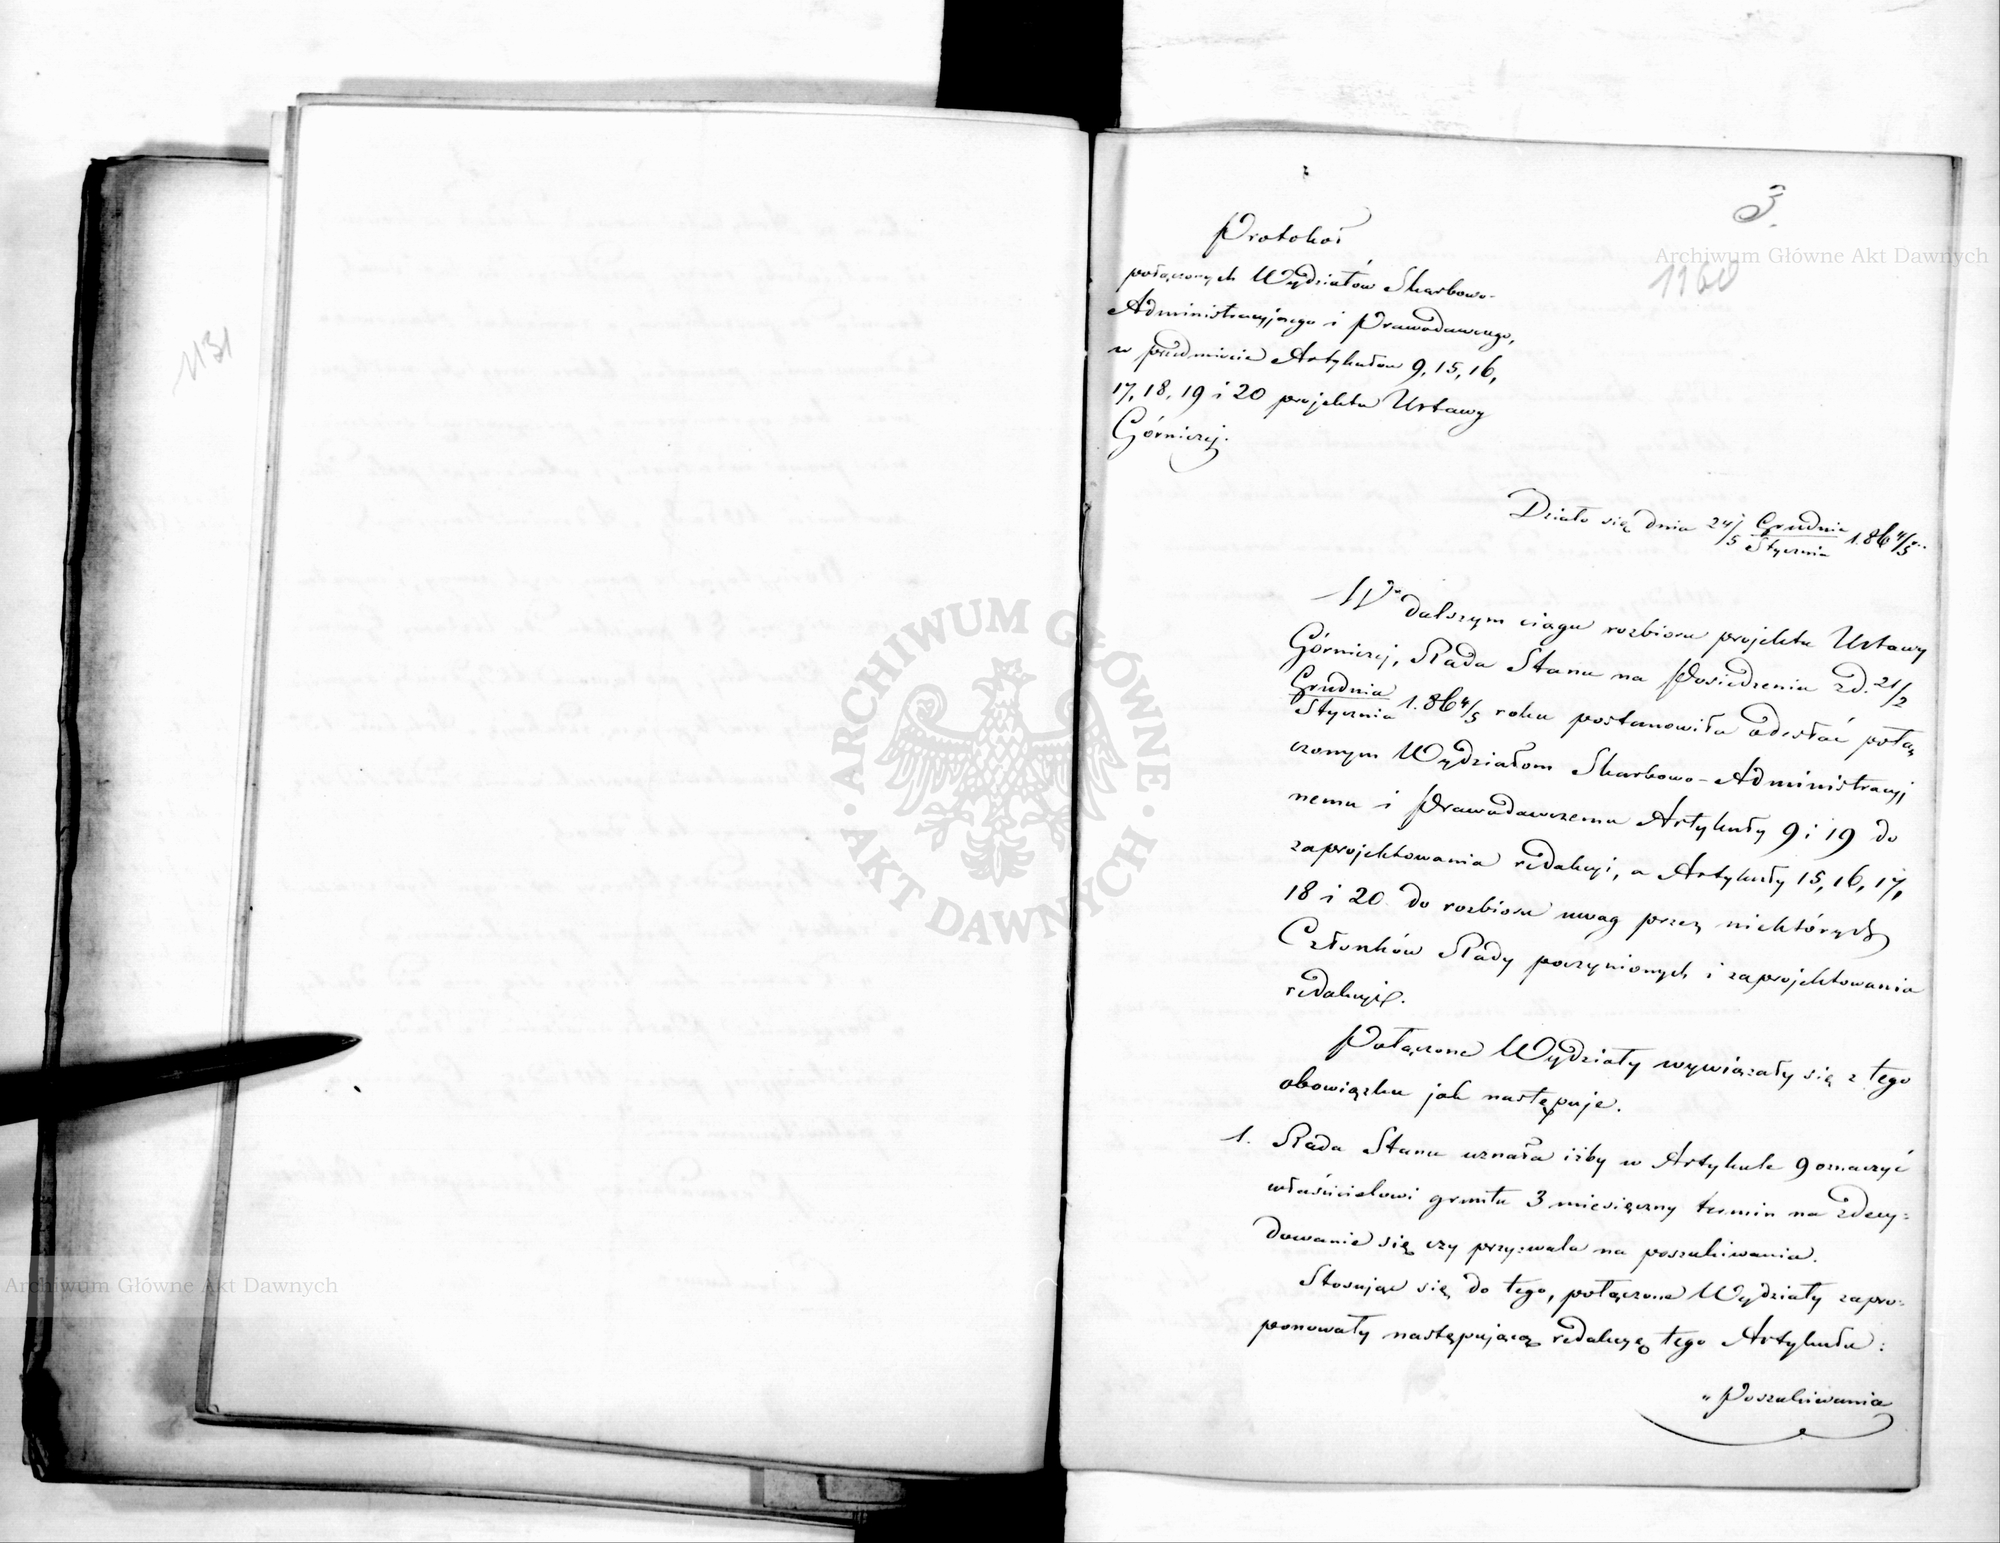 1131
3.
1160
Protokół
połączonych Wydziałów Skarbowo-
Administracyjnego i Prawodawczego,
w przedmiocie Artykułów 9, 15, 16,
17, 18, 19 i 20 projektu Ustawy
Górniczej.
Działo się dnia 24/5 Grudnia/Stycznia 1.864/5 r.
W dalszym ciągu rozbioru projektu Ustawy
Górniczej, Rada Stanu na Posiedzeniu z d. 21/2
Grudnia/Stycznia 1.864/5 roku postanowiła odesłać połą
czonym Wydziałom Skarbowo-Administracyj
nemu i Prawodawczemu Artykuły 9 i 19 do
zaprojektowania redakcyi, a Artykuły 15, 16, 17,
18 i 20 do rozbioru uwag przez niektórych
Członków Rady poczynionych i zaprojektowania
redakcyi.
Połączone Wydziały wywiązały się z tego
obowiązku jak następuje.
1. Rada Stanu uznała iżby w Artykule 9 oznaczyć
właścicielowi gruntu 3 miesięczny termin na zdecy=
dowanie się czy przyzwala na poszukiwania.
Stosując się do tego, połączone Wydziały zapro=
ponowały następującą redakcyę tego Artykułu:
"Poszukiwania
Archiwum Główne Akt Dawnych
ARCHIWUM GŁÓWNE · AKT DAWNYCH ·
Archiwum Główne Akt Dawnych